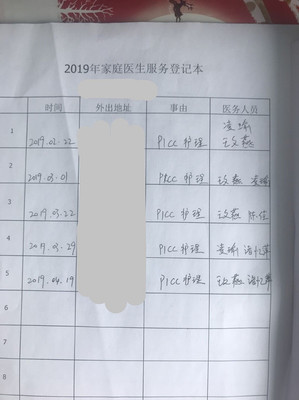 2019年家庭医生服务登记本
时间 外出地址 事由 医务人员
1 2019.02.22 PICC护理 凌瑜
2 2019.03.01 PICC护理 凌瑜
3 2019.03.22 PICC护理
4 2019.03.29 PICC护理 凌瑜
5 2019.04.19 PICC护理
6
7
8